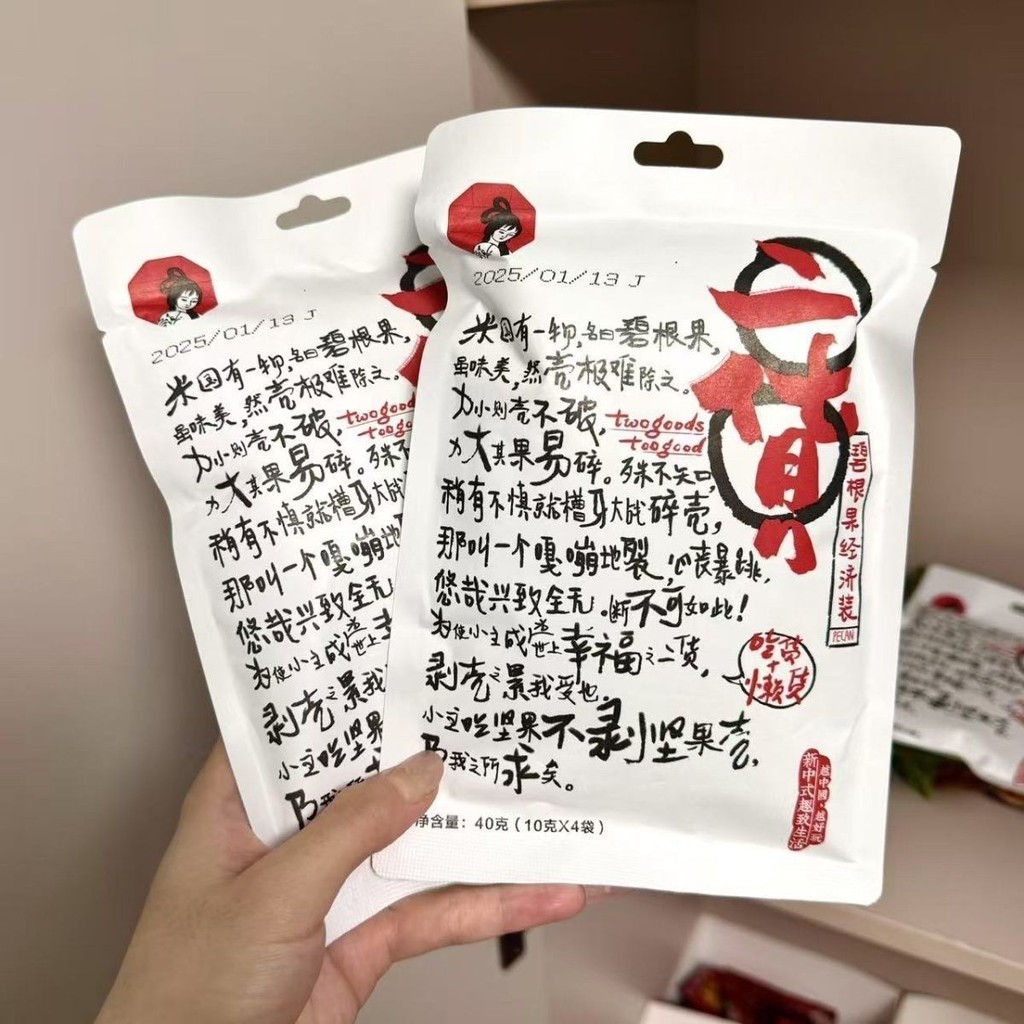 2025/01/13 J
米国有一物,名曰碧根果,
虽味美,然壳极难除之。
力小则壳不破,
力大其果易碎。殊不知,
稍有不慎就槽牙大战碎壳,
那叫一个嘎嘣地裂,心丧暴跳,
悠哉兴致全无。断不可如此!
为使小主成为当世上幸福之二货,
剥壳之累我受也。
小主吃坚果不剥坚果壳,
乃我之所求矣。
净含量:40克(10克X4袋)
twogoods
toogood
二货
碧根果经济装
PECAN
吃货
+
懒货
越中國,越好玩
新中式趣致生活
2025/01/13 J
米国有一物,名曰碧根果,
虽味美,然壳极难除之。
力小则壳不破,
力大其果易碎。殊不
稍有不慎就槽牙大战
那叫一个嘎嘣地
悠哉兴致全无
为使小主成为当世上
剥壳之累我
小主吃坚果
乃我
twogood
toogo